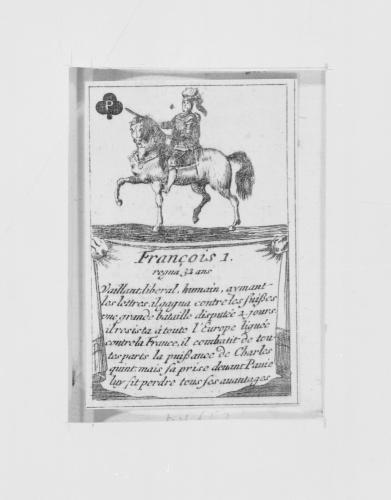 P
François 1.
regna 32 ans
Vaillant, liberal, humain, aymant
les lettres, il gagna contre les suißes
une grande bataille disputée 2 jours,
il resista à toute l'Europe liguée
contre la France, il combatit de tou-
tes parts la puißance de Charles
quint, mais sa prise devant Pavie
luy fit perdre tous ses avantages